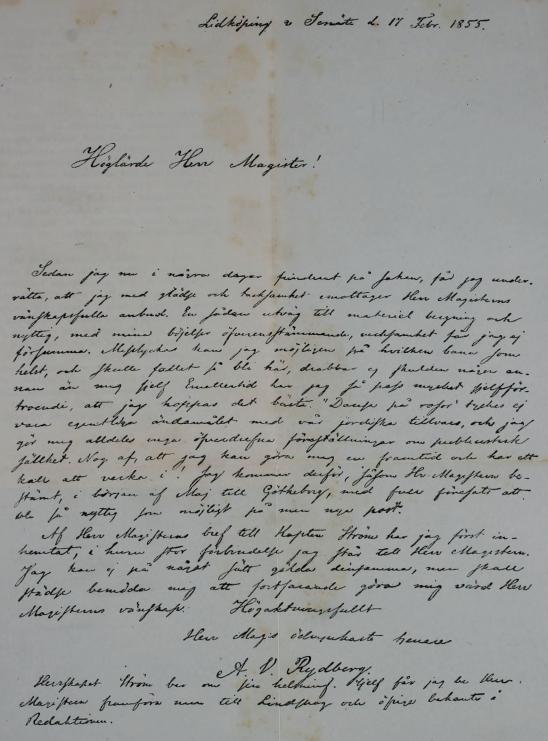 Lidköping & Senäte d. 17 Febr. 1855.
Höglärde Herr Magister!
Sedan jag nu i några dagar funderat på saken, får jag under-
rätta, att jag med glädje och tacksamhet emottager Herr Magisterns
vänskapsfulla anbud. En sådan utväg till materiel bergning och
nyttig, med mina böjelser öfverensstämmande, verksamhet får jag ej
försumma. Misslyckas kan jag möjligen på hvilken bana som
helst, och skulle fallet så bli här, drabbar ej skulden någon an-
nan än mig sjelf. Emellertid har jag så pass mycket sjelfför-
troende, att jag hoppas det bästa. "Dansa på rosor" tyckes ej
vara egentliga ändamålet med vår jordiska tillvaro, och jag
gör mig alldeles inga öfverdrifna föreställningar om publicistisk
sällhet. Nog af, att jag kan göra mig en framtid och har ett
kall att verka i! Jag kommer derför, såsom Hr Magistern be-
stämt, i början af Maj till Götheborg, med full föresats att
bli så nyttig som möjligt på min nya post.
Af Herr Magisterns bref till Kapten Ström har jag först in-
hemtat, i huru stor förbindelse jag står till Herr Magistern.
Jag kan ej på något sätt gälda densamma, men skall
städse bemöda mig att fortfarande göra mig värd Herr
Magisterns vänskap. Högaktningsfullt
Herr Magis ödmjukaste tjenare
A. V. Rydberg.
Herrskapet Ström ber om sin helsning. Sjelf får jag be Herr
Magistern framföra min till Lindskog och öfriga bekanta å
Redaktionen.